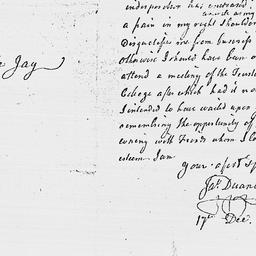 indisposition has increased.
a pain in my right shoulder
Disqualifies me from business
otherwise I should have been
attend a meeting of the Trustees
College after which had it not
I intended to have waited upon
remembring the opportunity of
evening with Friends whom I lo
esteem. I am
Jay
Your affect
Jas. Duane
17th Dec.